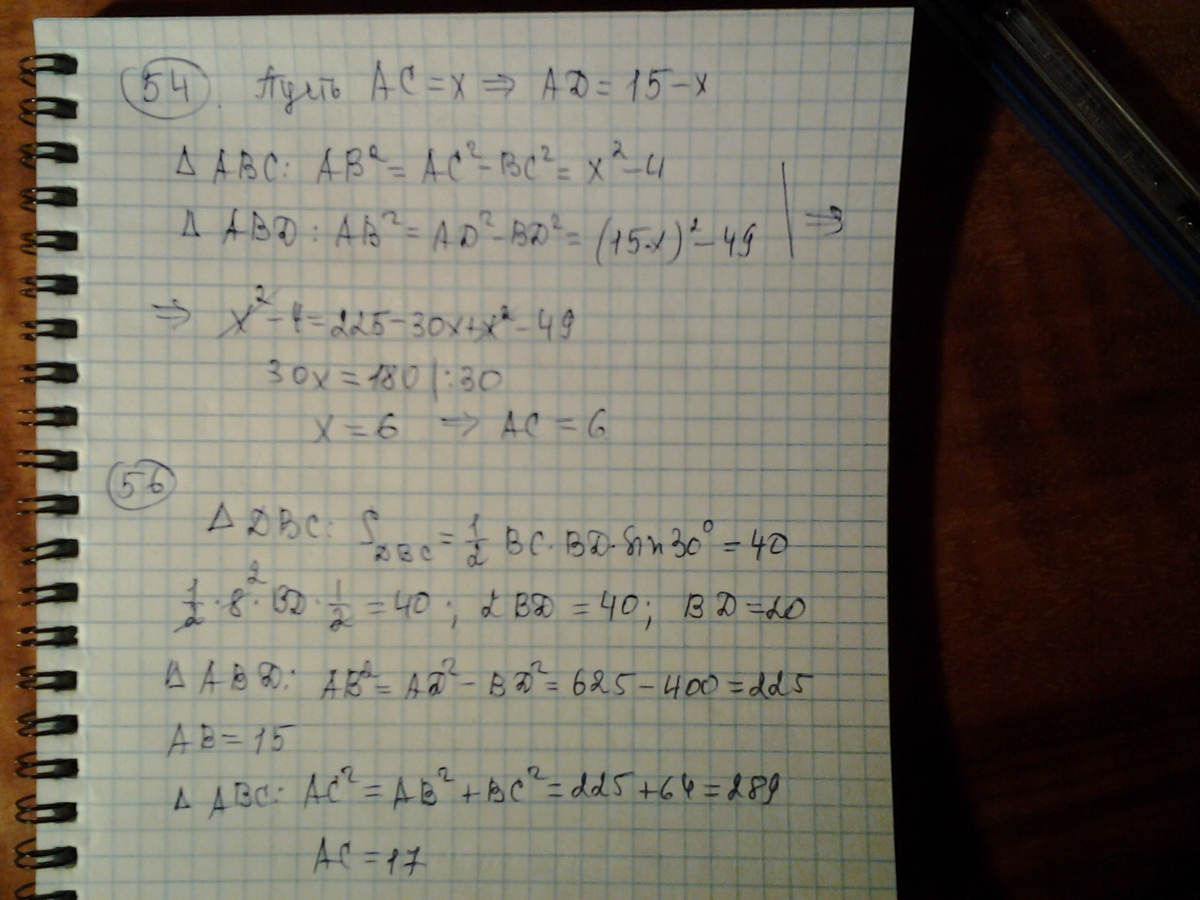 54. Пусть AC = x ⇒ AD = 15 - x
Δ ABC: AB² = AC² - BC² = x² - 4
Δ ABD: AB² = AD² - BD² = (15-x)² - 49 | ⇒
⇒ x² - 4 = 225 - 30x + x² - 49
30x = 180 |:30
x = 6 ⇒ AC = 6
56
Δ DBC: S_DBC = 1/2 BC · BD · sin 30° = 40
1/2 · 8² · BD · 1/2 = 40; 2BD = 40; BD = 20
Δ ABD: AB² = AD² - BD² = 625 - 400 = 225
AB = 15
Δ ABC: AC² = AB² + BC² = 225 + 64 = 289
AC = 17